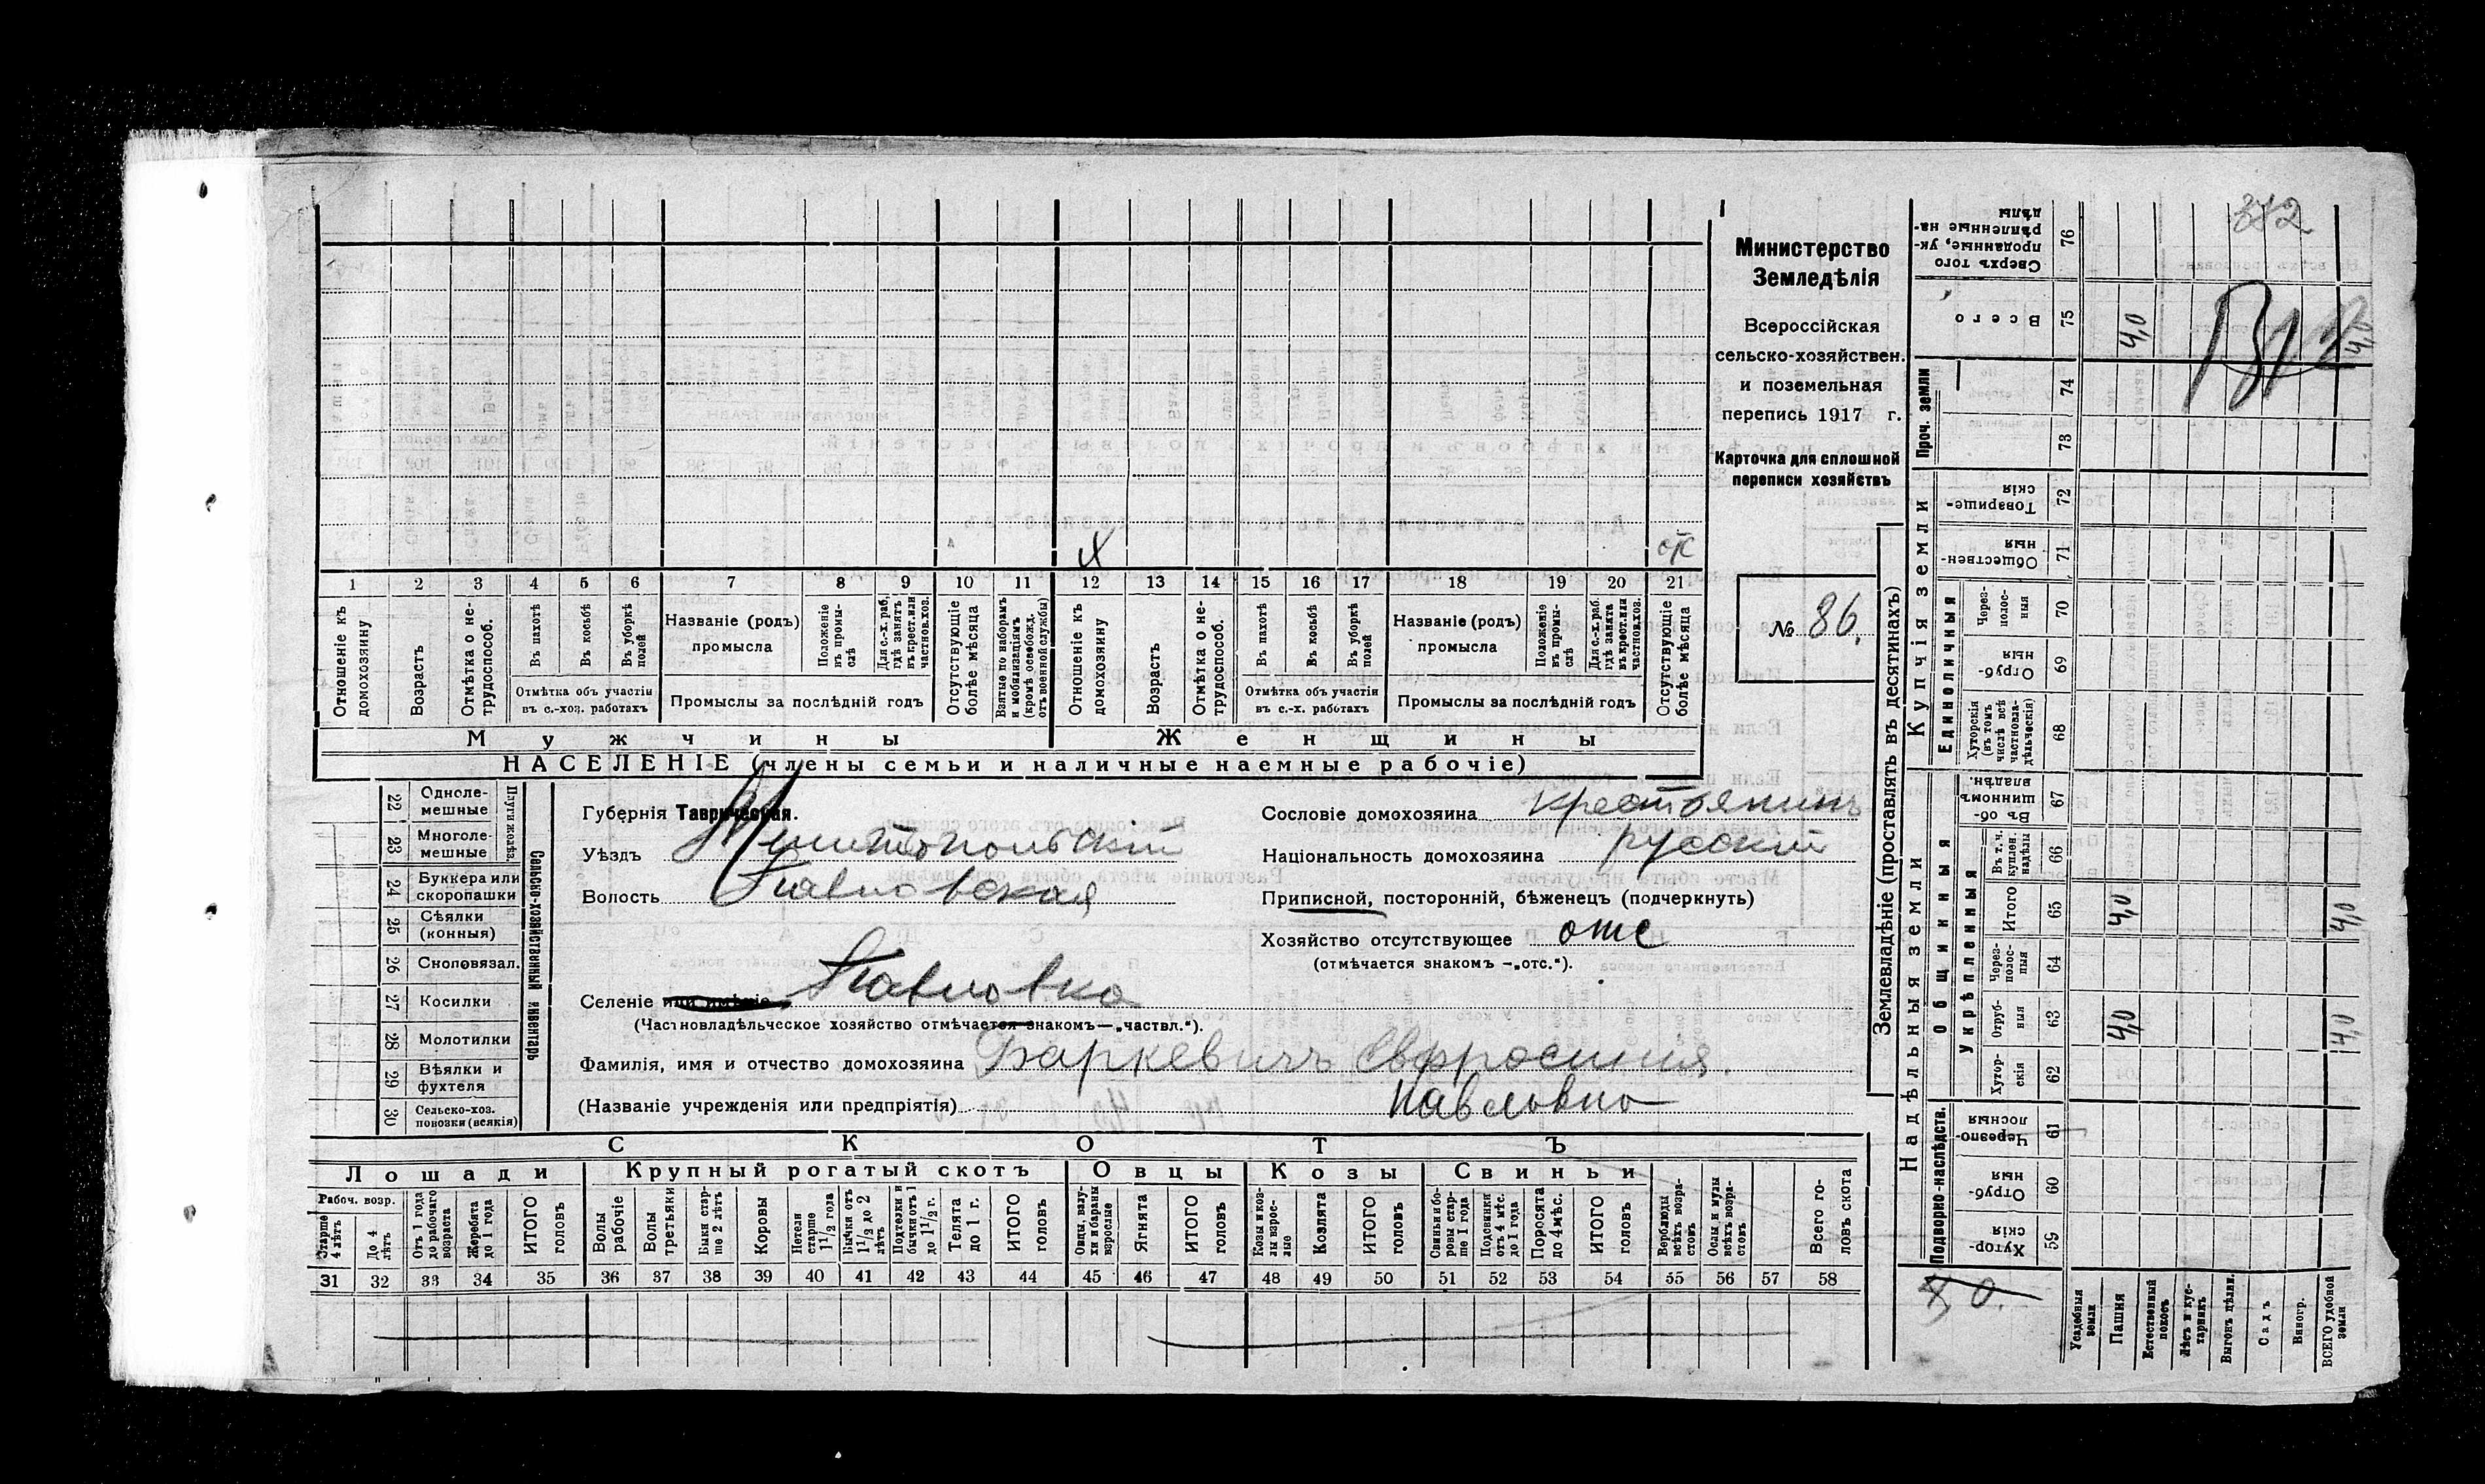 382
Министерство
Земледѣлія
Всероссійская
сельско-хозяйствен.
и поземельная
перепись 1917 г.
Карточка для сплошной
переписи хозяйствъ
№ 86.
х отс
1 2 3 4 5 6 7 8 9 10 11 12 13 14 15 16 17 18 19 20 21
Отношеніе къ домохозяину
Возрастъ
Отмѣтка о не-трудоспособ.
Въ пахотѣ
Въ косьбѣ
Въ уборкѣ полей
Отмѣтка объ участіи
въ с.-хоз. работахъ
Названіе (родъ)
промысла
Положеніе въ промы-слѣ
Для с.-х. раб, гдѣ занятъ въ крест. или частнов. хоз.
Промыслы за послѣдній годъ
Отсутствующіе болѣе мѣсяца
Взятые по наборамъ и мобилизаціямъ (кромѣ освобожд. отъ военной службы)
Отношеніе къ домохозяину
Возрастъ
Отмѣтка о не-трудоспособ.
Въ пахотѣ
Въ косьбѣ
Въ уборкѣ полей
Отмѣтка объ участіи
въ с.-х. работахъ
Названіе (родъ)
промысла
Положеніе въ промы-слѣ
Для с.-х. раб. гдѣ занята въ крест. или частнов. хоз.
Промыслы за послѣдній годъ
Отсутствующіе болѣе мѣсяца
Мужчины Женщины
НАСЕЛЕНІЕ (члены семьи и наличные наемные рабочіе)
22 Однолемешные
23 Многолемешные
24 Буккера или скоропашки
25 Сѣялки (конныя)
26 Сноповязал.
27 Косилки
28 Молотилки
29 Вѣялки и фухтеля
30 Сельско-хоз. повозки (всякія)
Сельско-хозяйственный инвентарь
Губернія Таврическая.
Уѣздъ Мелитопольскій
Волость Павловская
Селеніе или имѣніе Павловка
(Частновладѣльческое хозяйство отмѣчается знакомъ—„частвл.“).
Фамилія, имя и отчество домохозяина Баркевичъ Евфросинія
(Названіе учрежденія или предпріятія) Павловна
Сословіе домохозяина крестьянинъ
Національность домохозяина русскій
Приписной, посторонній, бѣженец (подчеркнуть)
Хозяйство отсутствующее отс
(отмѣчается знакомъ —„отс.“).
СКОТЪ
Лошади Крупный рогатый скотъ Овцы Козы Свиньи
Рабоч. возр.
Старше 4 лѣтъ
До 4 лѣтъ
Отъ 1 года до рабочаго возраста
Жеребята до 1 года
ИТОГО головъ
Волы рабочіе
Волы третьяки
Быки старше 2 лѣтъ
Коровы
Нетели старше 1 1/2 года
Бычки отъ 1 1/2 до 2 лѣтъ
Подтелки и бычки отъ 1 до 1 1/2 г.
Телята до 1 г.
ИТОГО головъ
Овцы, валухи и бараны взрослые
Ягнята
ИТОГО головъ
Козы и козлы взрослые
Козлята
ИТОГО головъ
Свиньи и боровы старше 1 года
Подсвинки отъ 4 мѣс. до 1 года
Поросята до 4 мѣс.
ИТОГО головъ
Верблюды всѣхъ возрастовъ
Ослы и мулы всѣхъ возрастовъ
Всего головъ скота
31 32 33 34 35 36 37 38 39 40 41 42 43 44 45 46 47 48 49 50 51 52 53 54 55 56 57 58
Землевладѣніе (проставлять въ десятинахъ)
Надѣльныя земли
Купчія земли
Проч. земли
Подворно-наслѣдств.
Общинныя
Укрѣпленныя
Единоличныя
Сверхъ того проданные, укрѣпленные надѣлы 76
Всего 75 4,0 4,0
74
73
Товарищескія 72
Общественныя 71
Черезполосныя 70
Отрубныя 69
Хуторскія (въ томъ числѣ всѣ частновладѣльческія) 68
Въ общинномъ владѣн. 67
Въ т. ч. куплен. надѣлы 66
Итого 65 4,0 4,0
Черезполосныя 64
Отрубныя 63 4,0 4,0
Хуторскія 62
Черезполосныя 61
Отрубныя 60
Хуторскія 59
Усадебныя земли
Пашня
Естественный покосъ
Лѣсъ и кустарникъ
Выгонъ цѣлин.
Садъ
Виногр.
ВСЕГО удобной земли